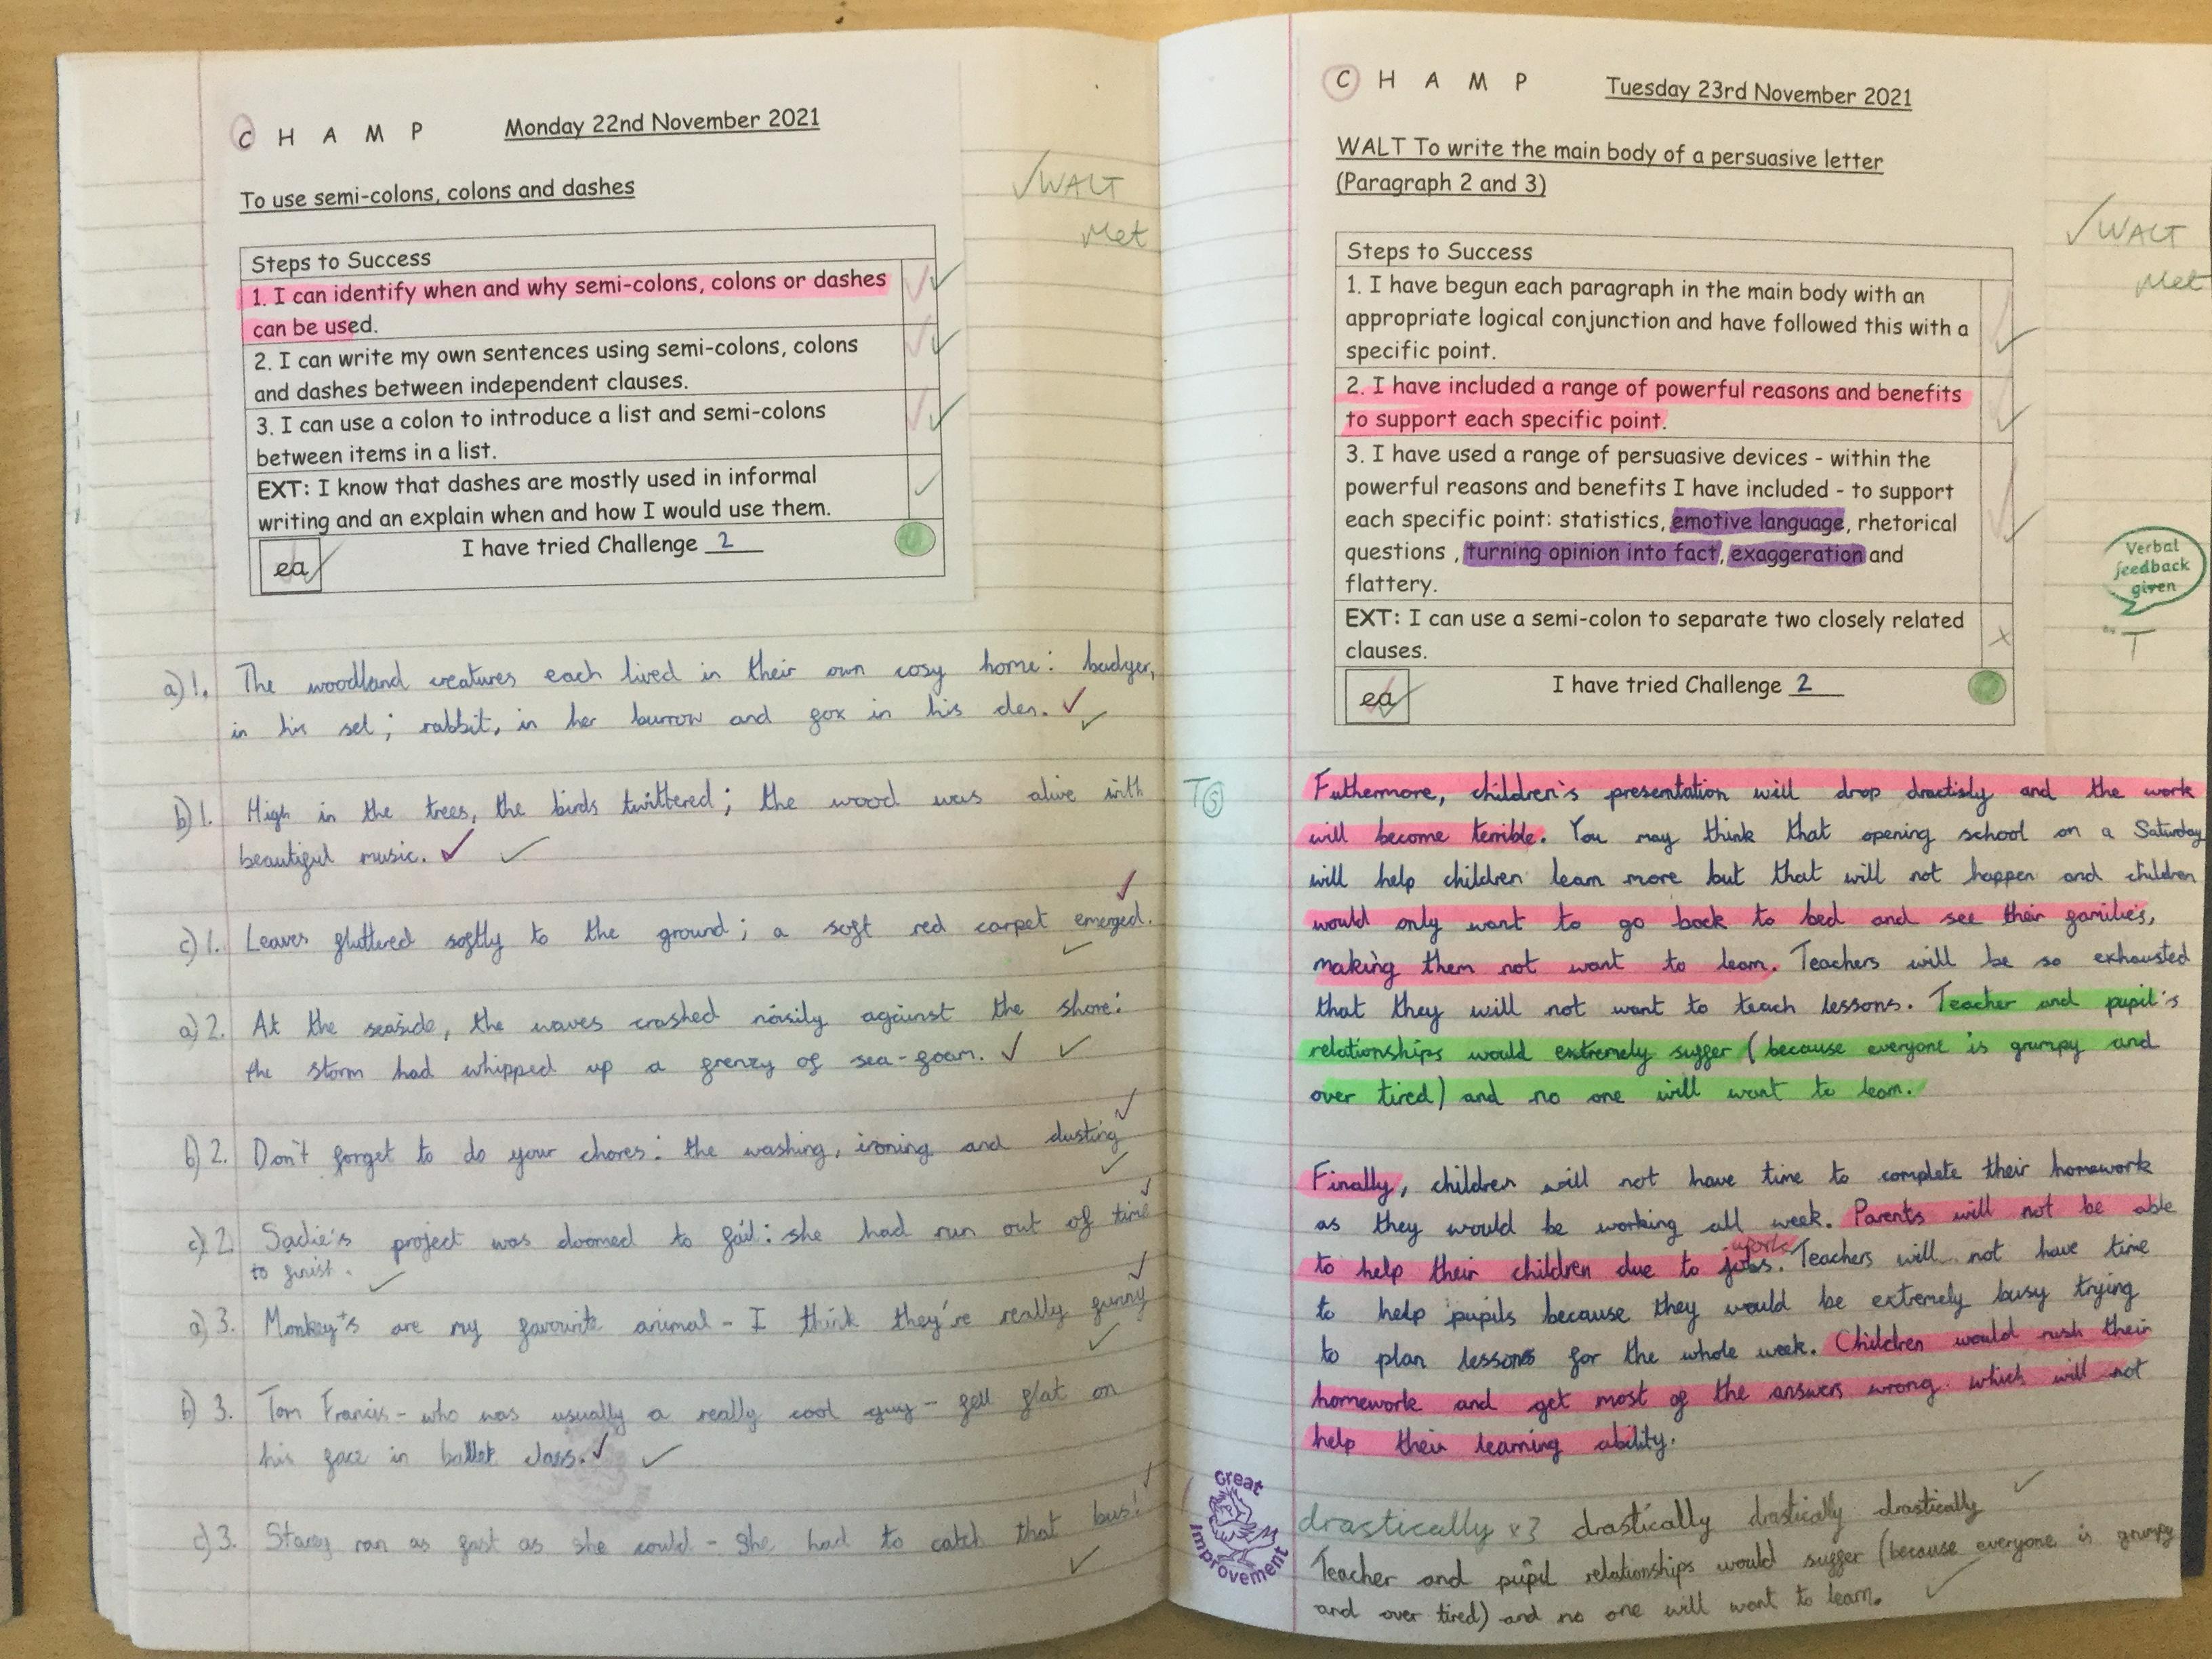 C H A M P Monday 22nd November 2021
To use semi-colons, colons and dashes
✓WALT
Met
Steps to Success
1. I can identify when and why semi-colons, colons or dashes
can be used.
2. I can write my own sentences using semi-colons, colons
and dashes between independent clauses.
3. I can use a colon to introduce a list and semi-colons
between items in a list.
EXT: I know that dashes are mostly used in informal
writing and an explain when and how I would use them.
ea I have tried Challenge 2
a) 1. The woodland creatures each lived in their own cosy home: badger,
in his set; rabbit, in her burrow and fox in his den.
b) 1. High in the trees, the birds twittered; the wood was alive with
beautiful music.
c) 1. Leaves fluttered softly to the ground; a soft red carpet emerged.
a) 2. At the seaside, the waves crashed noisily against the shore:
the storm had whipped up a frenzy of sea-foam.
b) 2. Don't forget to do your chores: the washing, ironing and dusting
c) 2. Sadie's project was doomed to fail: she had run out of time
to finish.
a) 3. Monkey's are my favourite animal - I think they're really funny
b) 3. Tom Francis - who was usually a really cool guy - fell flat on
his face in ballet class.
c) 3. Stacey ran as fast as she could - she had to catch that bus!
C H A M P Tuesday 23rd November 2021
WALT To write the main body of a persuasive letter
(Paragraph 2 and 3)
✓WALT
Met
Steps to Success
1. I have begun each paragraph in the main body with an
appropriate logical conjunction and have followed this with a
specific point.
2. I have included a range of powerful reasons and benefits
to support each specific point.
3. I have used a range of persuasive devices - within the
powerful reasons and benefits I have included - to support
each specific point: statistics, emotive language, rhetorical
questions , turning opinion into fact, exaggeration and
flattery.
EXT: I can use a semi-colon to separate two closely related
clauses.
ea I have tried Challenge 2
Verbal
feedback
given
T
T S
Futhermore, children's presentation will drop dractisly and the work
will become terrible. You may think that opening school on a Saturday
will help children learn more but that will not happen and children
would only want to go back to bed and see their families,
making them not want to learn. Teachers will be so exhausted
that they will not want to teach lessons. Teacher and pupil's
relationships would extremely suffer (because everyone is grumpy and
over tired) and no one will want to learn.
Finally, children will not have time to complete their homework
as they would be working all week. Parents will not be able
to help their children due to jobs. work Teachers will not have time
to help pupils because they would be extremely busy trying
to plan lessons for the whole week. Children would rush their
homework and get most of the answers wrong. which will not
help their learning ability.
Great
Improvement
drastically x3 drastically drastically drastically
Teacher and pupil relationships would suffer (because everyone is grumpy
and over tired) and no one will want to learn.